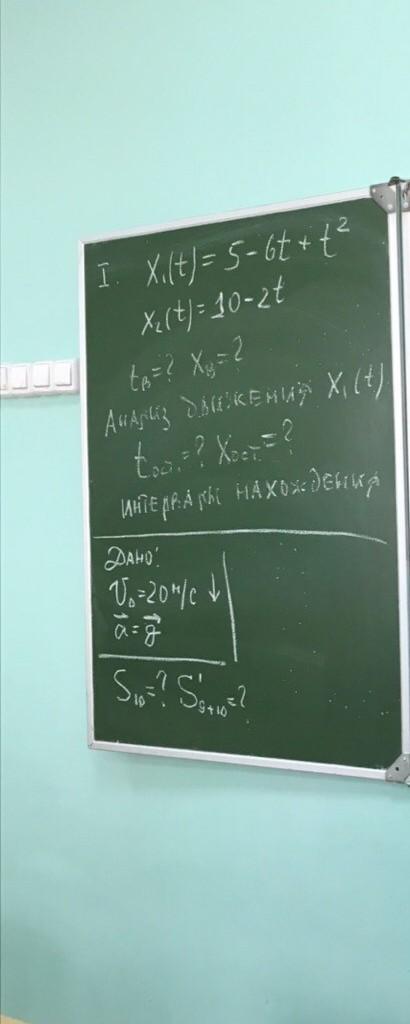 I. X₁(t) = 5 - 6t + t²
X₂(t) = 10 - 2t
tв = ? Xв = ?
АНАЛИЗ ДВИЖЕНИЯ X₁(t)
tост. = ? Xост. = ?
ИНТЕРВАЛЫ НАХОЖДЕНИЯ
ДАНО:
V₀ = 20 м/с ↓
a⃗ = g⃗
S₁₀ = ? S'₉÷₁₀ = ?